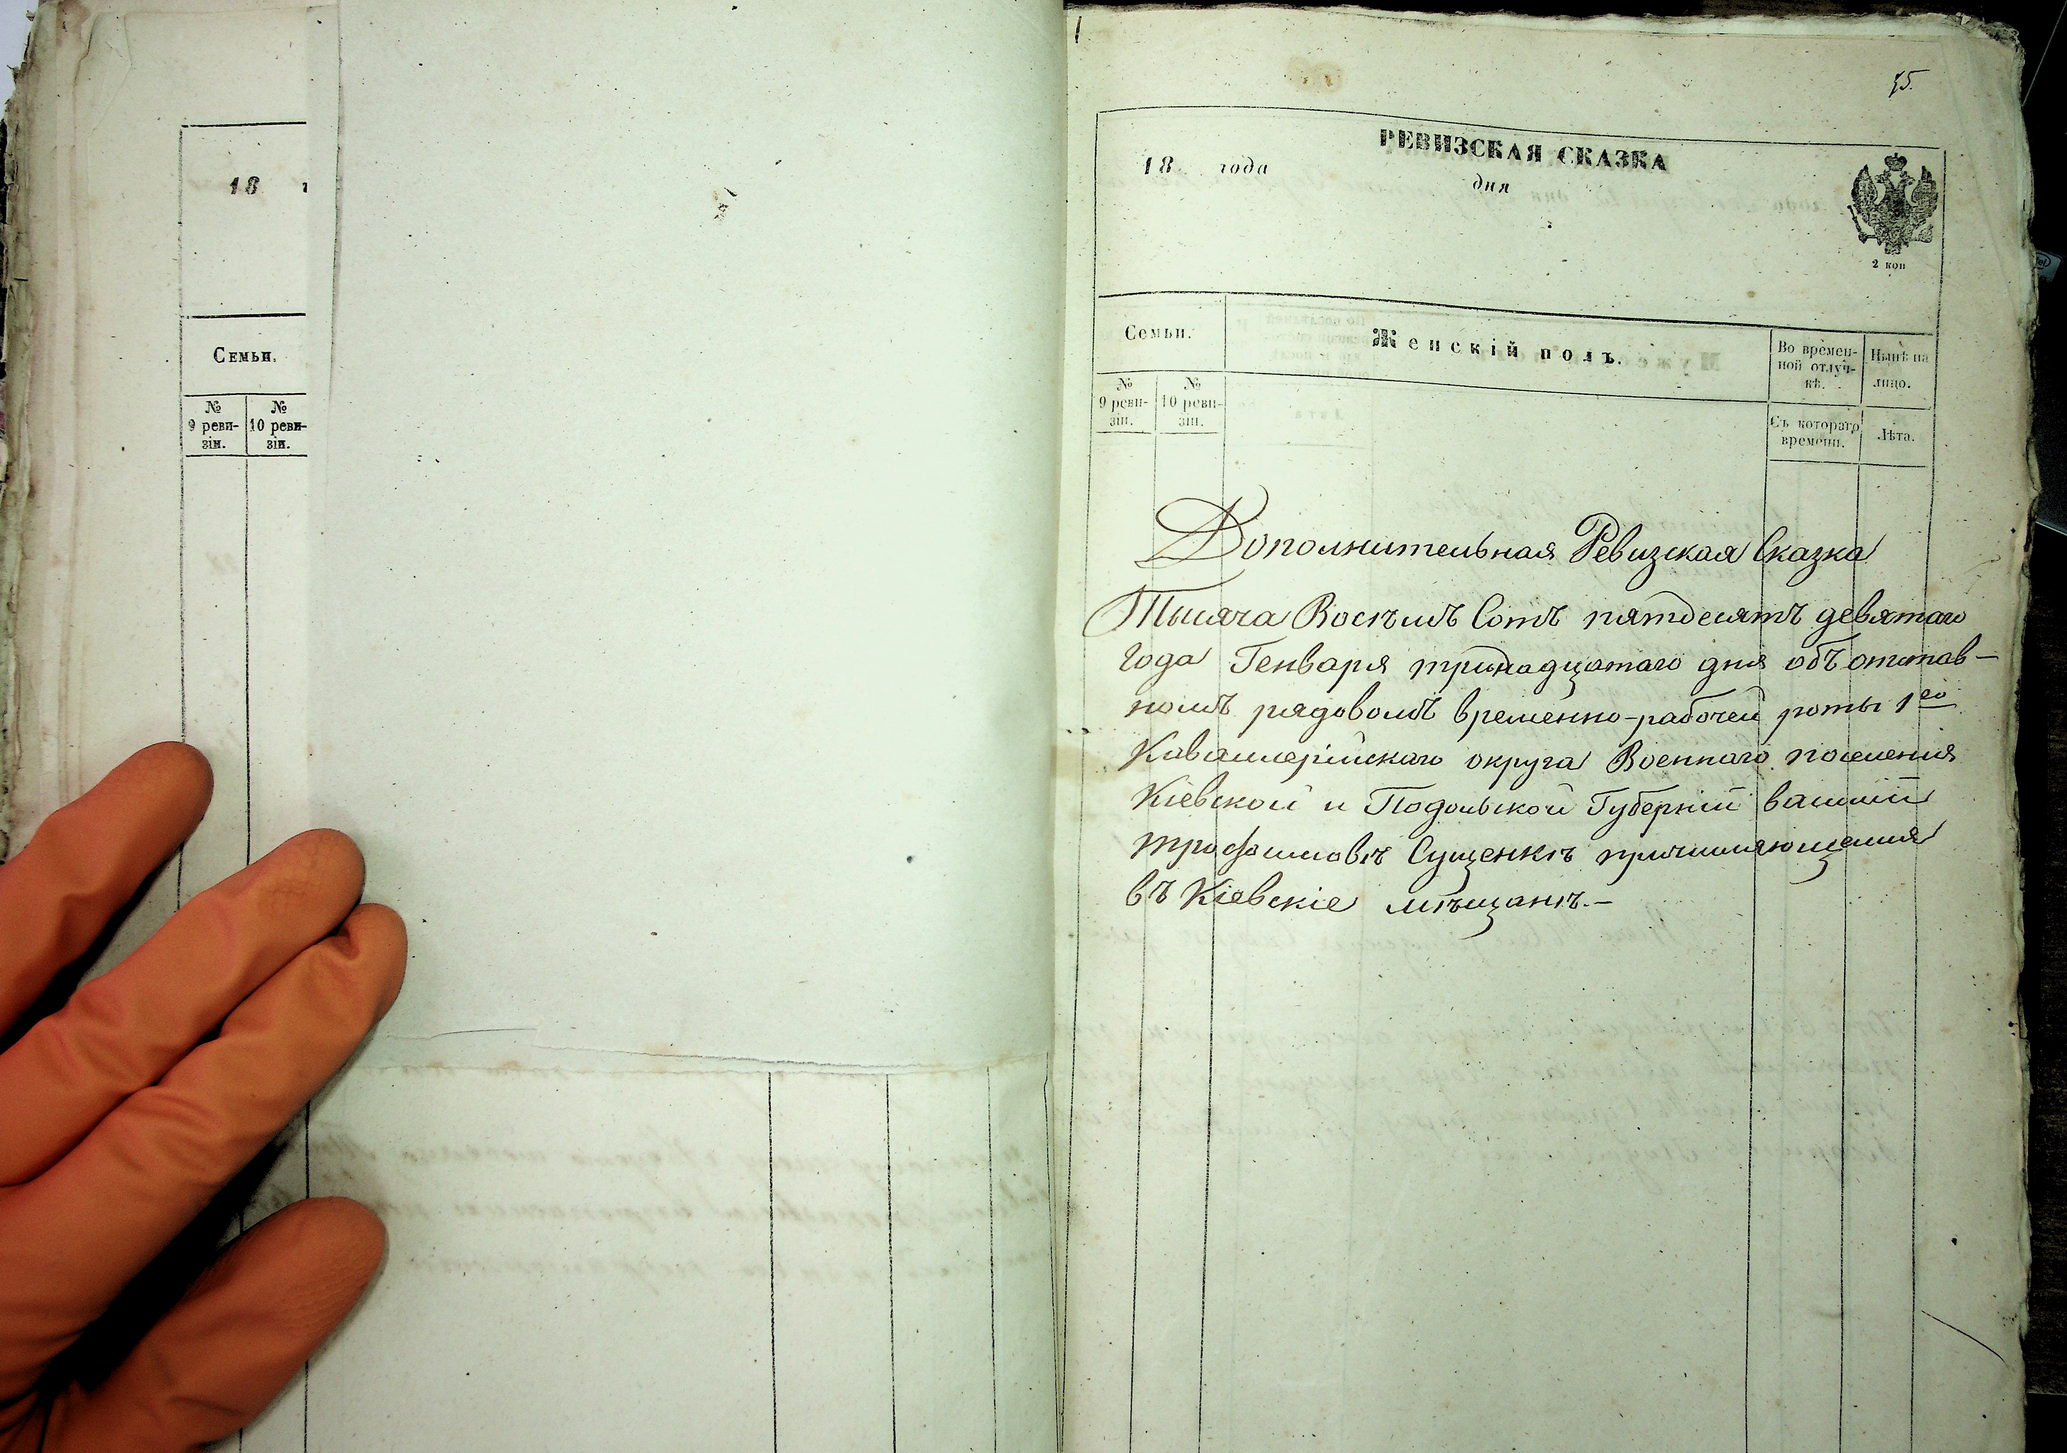 18 г
Семьи.
№ №
9 реви- 10 реви-
зіи. зіи.
75.
РЕВИЗСКАЯ СКАЗКА
18 года дня
2 коп
Семьи.
Женскій полъ.
Во времен-
ной отлуч-
кѣ.
Нынѣ на
лицо.
№ №
9 реви- 10 реви-
зіи. зіи.
Съ котораго
времени.
Лѣта.
Дополнительная Ревизская Сказка
Тысяча Восѣмъ Сотъ пятдесятъ девятаго
года Генваря тринадцатаго дня объ отстав-
номъ рядовомъ временно-рабочей роты 1го
Каваллерійскаго округа Военнаго поселенія
Кіевской и Подольской Губерній
Трофимовѣ Сущенкѣ причисляющемся
въ Кіевскіе мѣщанѣ.-